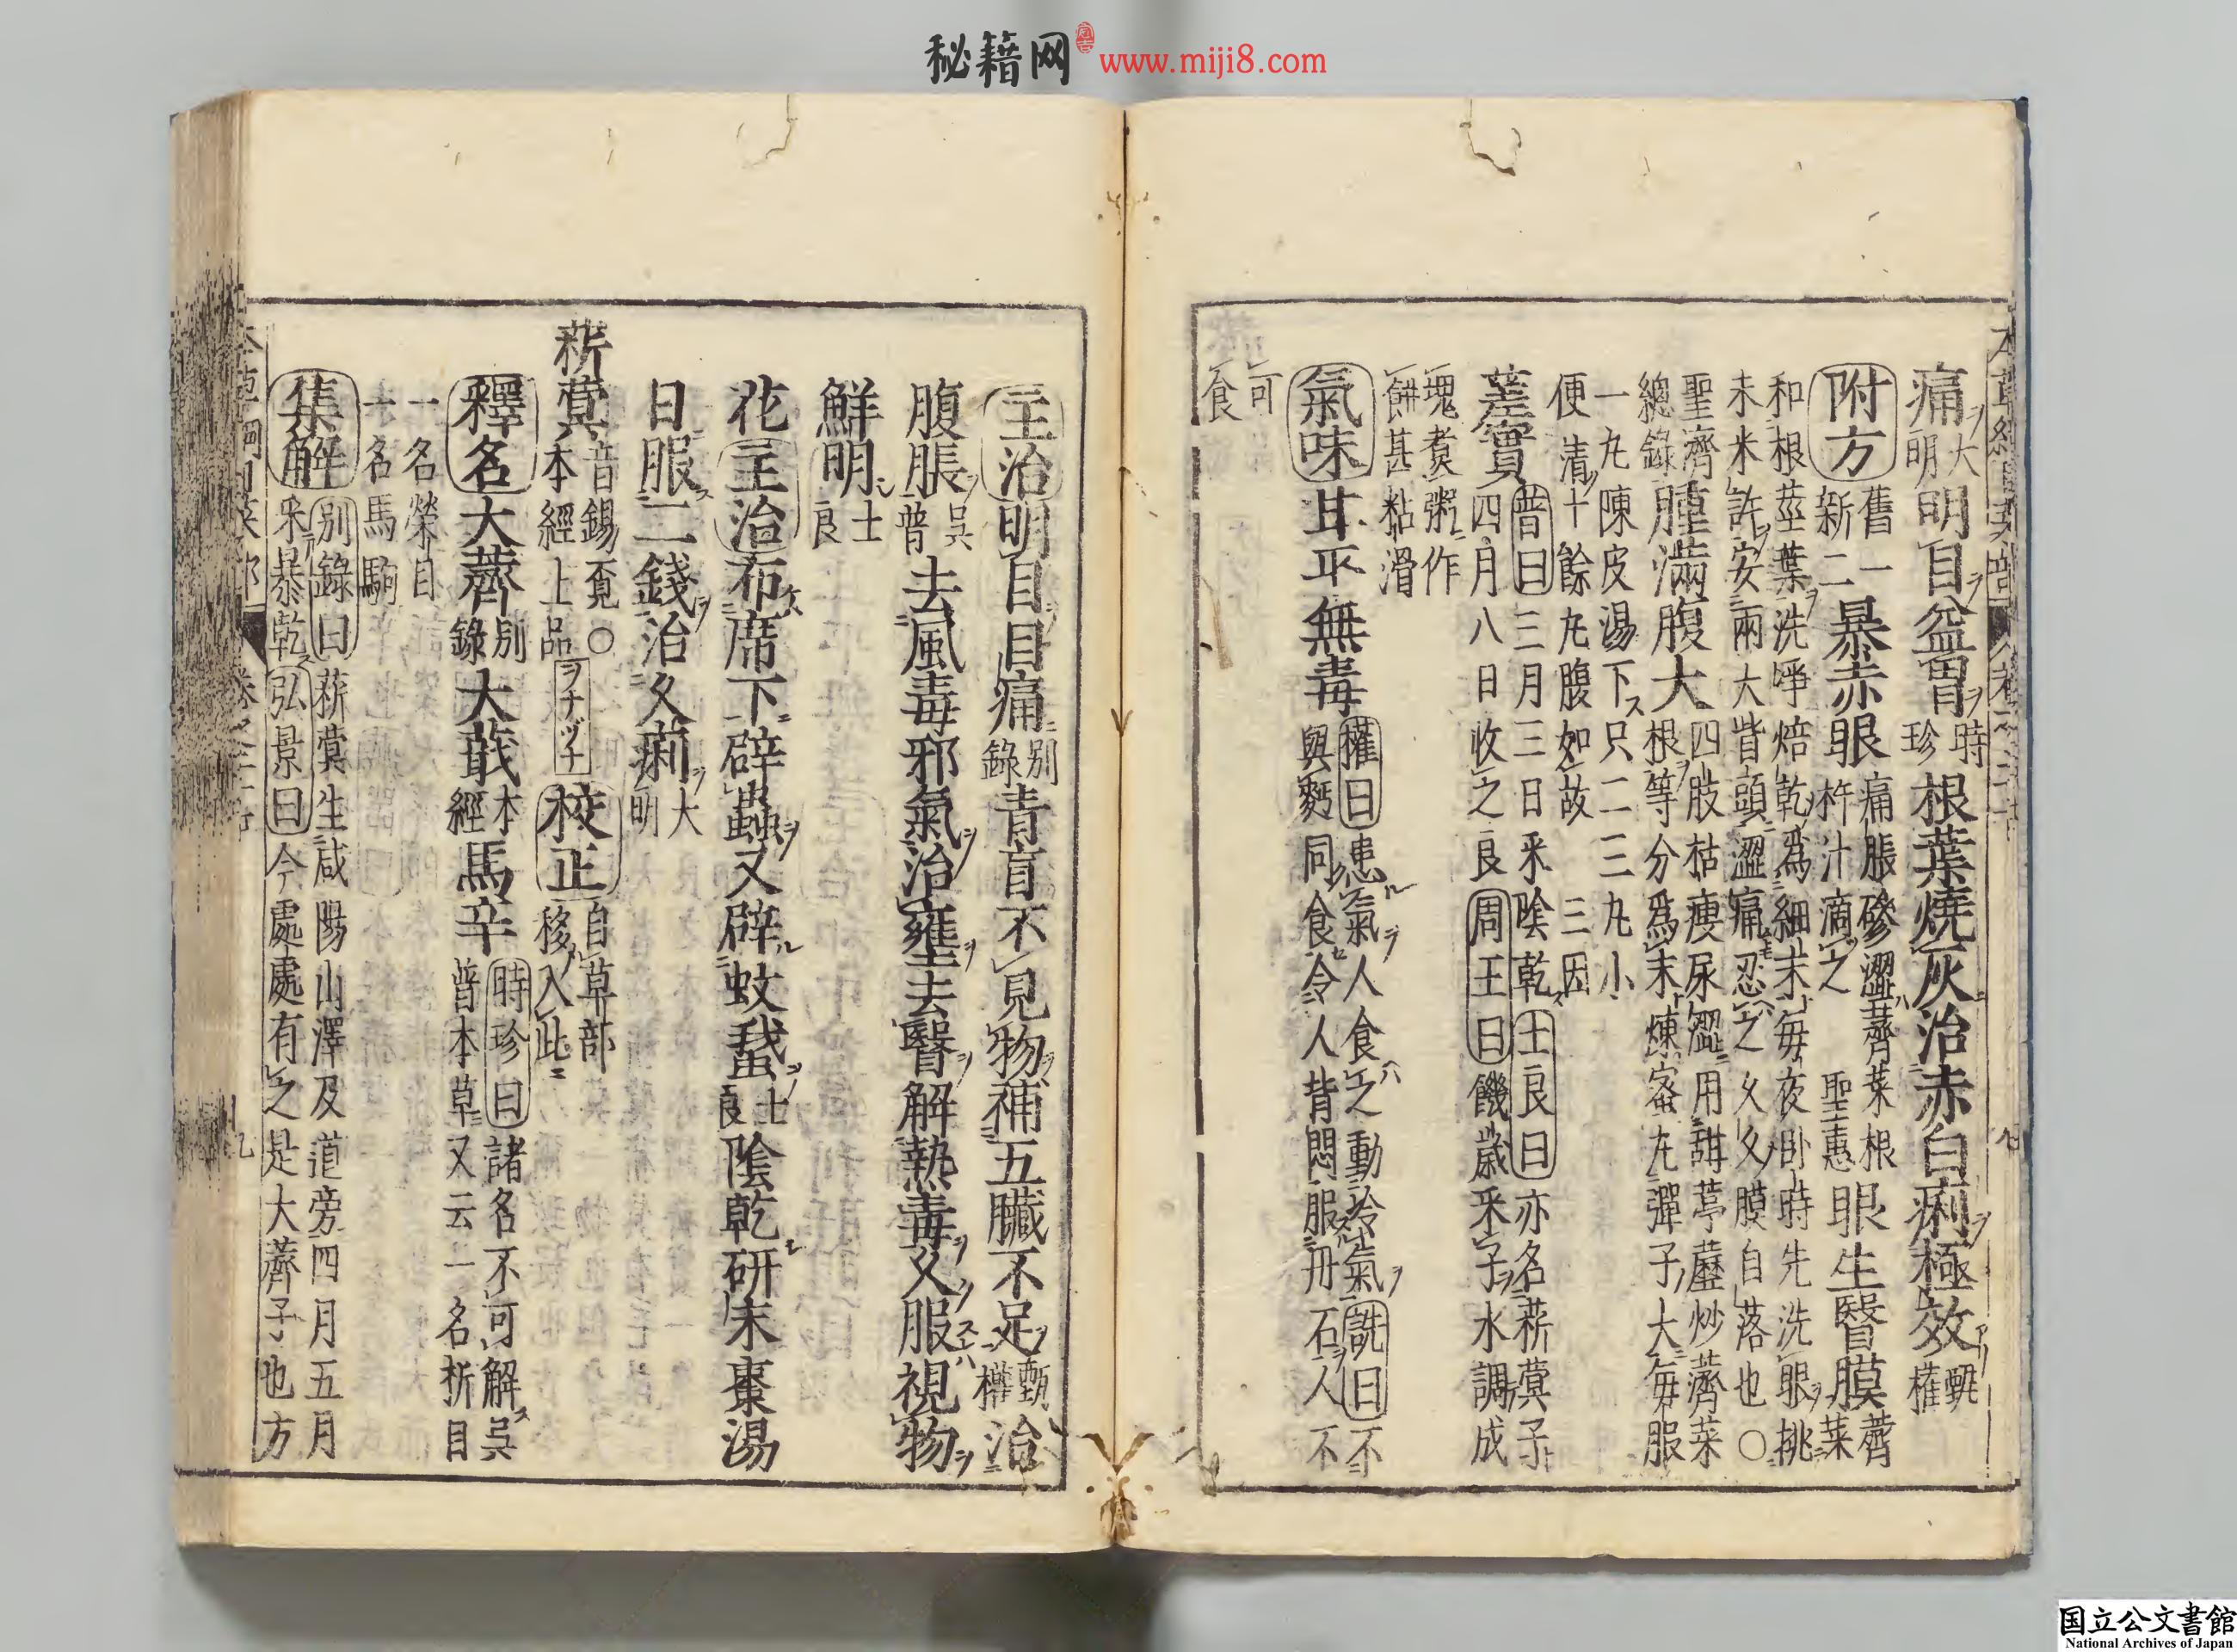 秘籍网 www.miji8.com
痛大明明目益胃時珍根葉燒灰治赤白痢極效甄權
附方舊一新二暴赤眼痛脹磣澀薺菜根杵汁滴之聖惠眼生瞖膜薺菜
和根莖葉洗淨焙乾為細末每夜卧時先洗眼挑
末米許安兩大眥頭澀痛忍之久久膜自落也○
聖濟總錄腫滿腹大四肢枯瘦尿澀用甜葶藶炒薺菜
根等分為末煉蜜丸彈子大每服
一丸陳皮湯下只二三丸小
便清十餘丸腹如故三因
蒫實普曰三月三日采陰乾士良曰亦名菥蓂子
四月八日收之良周王曰饑歲采子水調成
塊煑粥作
餅甚粘滑
氣味甘平無毒權曰患氣人食之動冷氣詵曰不
與麪同食令人背悶服丹石人不
可
食
主治明目目痛別錄青盲不見物補五臟不足甄權治
腹脹吳普去風毒邪氣治壅去瞖解熱毒久服視物
鮮明士良
花主治布席下辟蟲又辟蚊蛾士良陰乾研末棗湯
日服二錢治久痢大明
菥蓂音錫覓○本經上品ヲナヅナ校正自草部移入此
釋名大薺別錄大蕺本經馬辛時珍曰諸名不可解吳
普本草又云一名析目
一名榮目
一名馬駒
集解別錄曰菥蓂生咸陽山澤及道旁四月五月
采暴乾弘景曰今處處有之是大薺子也方
国立公文書館
National Archives of Japan